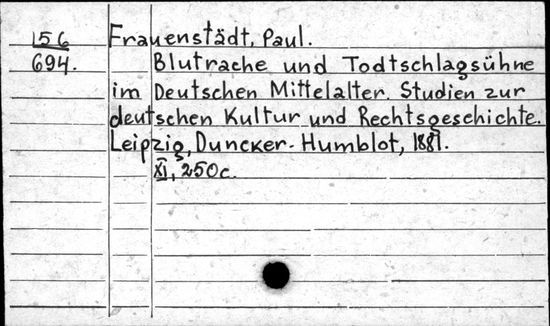 156
694.
Frauenstädt, Paul.
Blutrache und Todtschlagsühne
im Deutschen Mittelalter. Studien zur
deutschen Kultur und Rechtsgeschichte.
Leipzig, Duncker-Humblot, 1881.
XI, 250c.